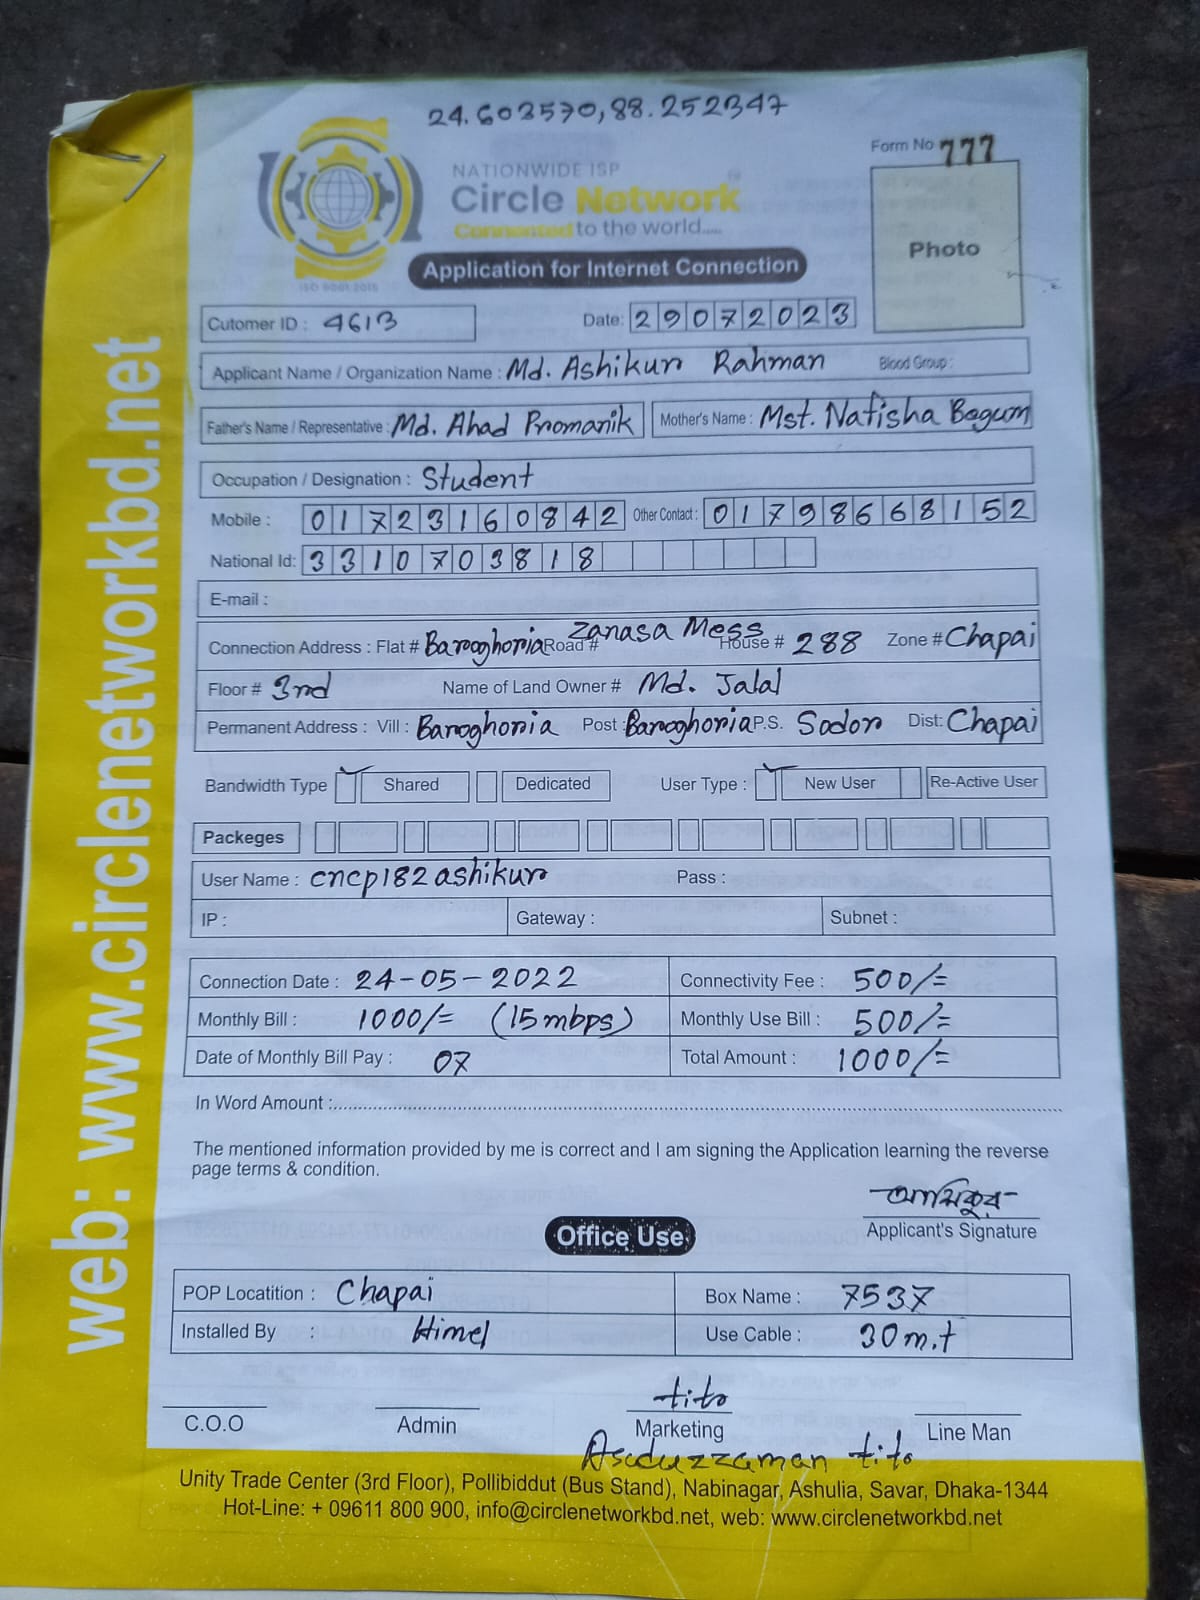 24.603570,88.252347
Form No 777
NATIONWIDE ISP
Circle Network
Connented to the world.....
ISO 9001:2015
Photo
Application for Internet Connection
Cutomer ID : 4613 Date: 29072023
Applicant Name / Organization Name : Md. Ashikur Rahman Blood Group :
Father's Name / Representative : Md. Ahad Promanik Mother's Name : Mst. Nafisha Begum
Occupation / Designation : Student
Mobile : 01723160842 Other Contact : 01798668152
National Id: 3310703818
E-mail :
Connection Address : Flat # Baroghoria Road # Zanasa Mess House # 288 Zone # Chapai
Floor # 3rd Name of Land Owner # Md. Jalal
Permanent Address : Vill : Baroghoria Post : Baroghoria P.S. Sodor Dist: Chapai
Bandwidth Type Shared Dedicated User Type : New User Re-Active User
Packeges
User Name : cncp182ashikur Pass :
IP : Gateway : Subnet :
Connection Date : 24-05-2022 Connectivity Fee : 500/=
Monthly Bill : 1000/= (15mbps) Monthly Use Bill : 500/=
Date of Monthly Bill Pay : 07 Total Amount : 1000/=
In Word Amount :
The mentioned information provided by me is correct and I am signing the Application learning the reverse
page terms & condition.
আশিকুর
Applicant's Signature
Office Use
POP Locatition : Chapai Box Name : 7537
Installed By : Himel Use Cable : 30m.t
tito
C.O.O Admin Marketing Line Man
Asaduzzaman tito
Unity Trade Center (3rd Floor), Pollibiddut (Bus Stand), Nabinagar, Ashulia, Savar, Dhaka-1344
Hot-Line: + 09611 800 900, info@circlenetworkbd.net, web: www.circlenetworkbd.net
web: www.circlenetworkbd.net